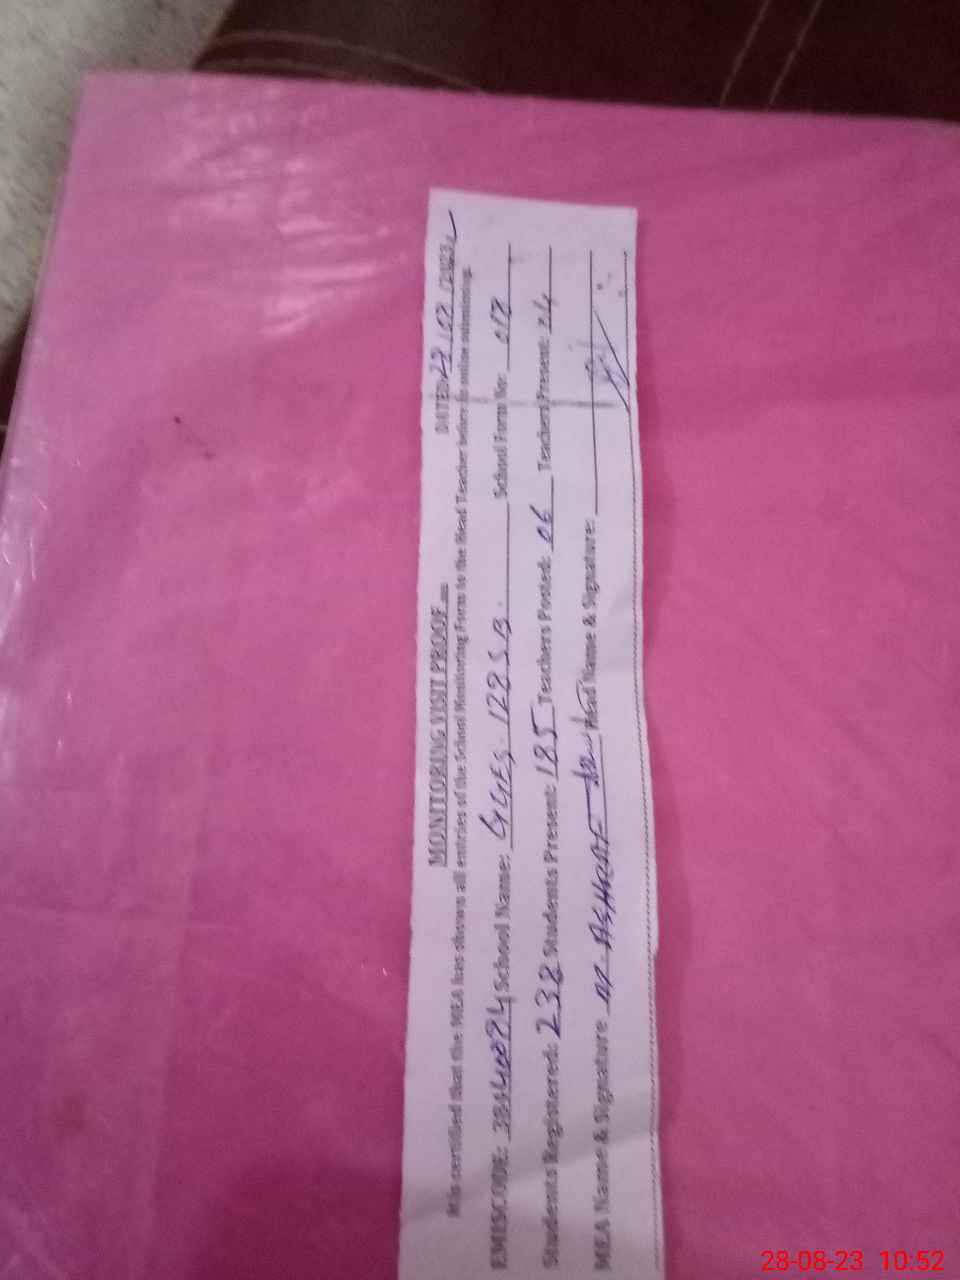 MONITORING VISIT PROOF
DATED 28/08/2023
It is certified that the MEA has shown all entries of the School Monitoring Form to the Head Teacher before its online submissioning.
EMISCODE: School Name: GGES. 128 S.B. School Form No: 018
Students Registered: 238 Students Present: 185 Teachers Posted: 06 Teachers Present: 04
MEA Name & Signature M. ASHRAF Head Name & Signature:
28-08-23 10:52